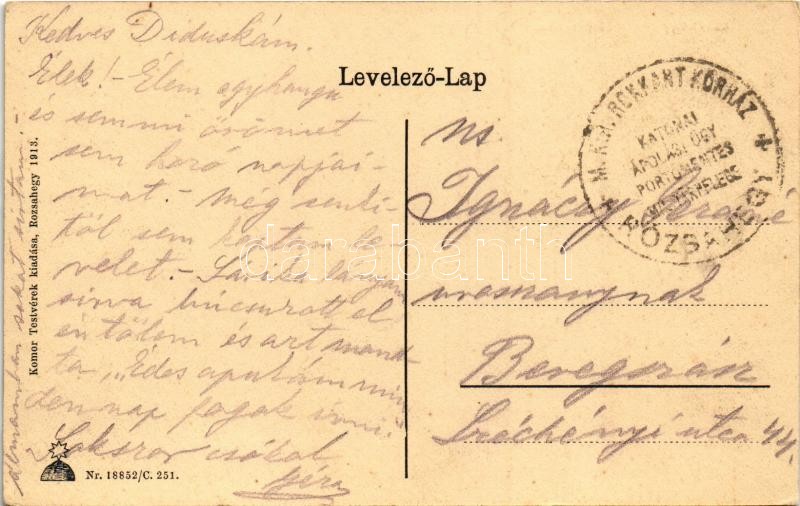 Kedves Diduskám.
Élek! - Élem egyhangu
és semmi örömet
sem hozó napjai-
mat - még senki-
től sem kaptam le
velet. - Sárika lányom
sirva bucsuzott el
én tőlem és azt mond
ta, "Édes apukám min
den nap fogok irni."
Sokszor csókol
Géza
álmamban sokat sirtam! -
Komor Testvérek kiadása, Rozsahegy 1913.
Nr. 18852/C. 251.
Levelező-Lap
M. KIR. ROKKANT KÓRHÁZ + RÓZSAHEGY +
KATONAI
ÁPOLÁSI ÜGY
PORTÓMENTES
Ignáczy Gézáné
urasszonynak
Beregszász
Széchényi utca 44.
darabanth